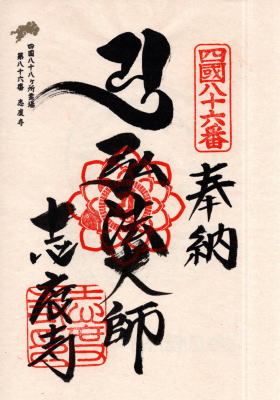 四國八十六番
奉納
弘法大師
志度寺
四國八十八ヶ所霊場
第八十六番 志度寺
志度